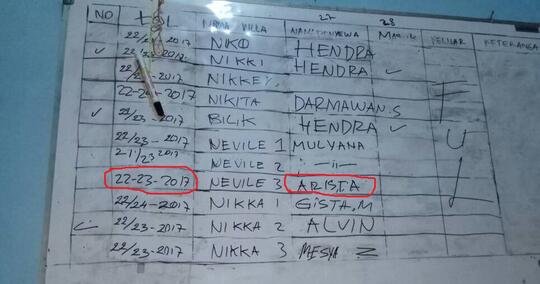 NO TGL NAMA VILLA NAMA PENYEWA MASUK KELUAR KETERANGA
27 28
22/24-2017 NIKO HENDRA
✓ 22/23-2017 NIKKI HENDRA ✓
NIKKEY
22-24-2017 NIKITA DARMAWAN.S
✓ 22/23-2017 BILIK HENDRA ✓
22/23-2017 NEVILE 1 MULYANA
NEVILE 2 -11-
22-23-2017 NEVILE 3 ARISTA
22/24-2017 NIKKA 1 GISTA.M
22/23-2017 NIKKA 2 ALVIN
22/23-2017 NIKKA 3
FUL